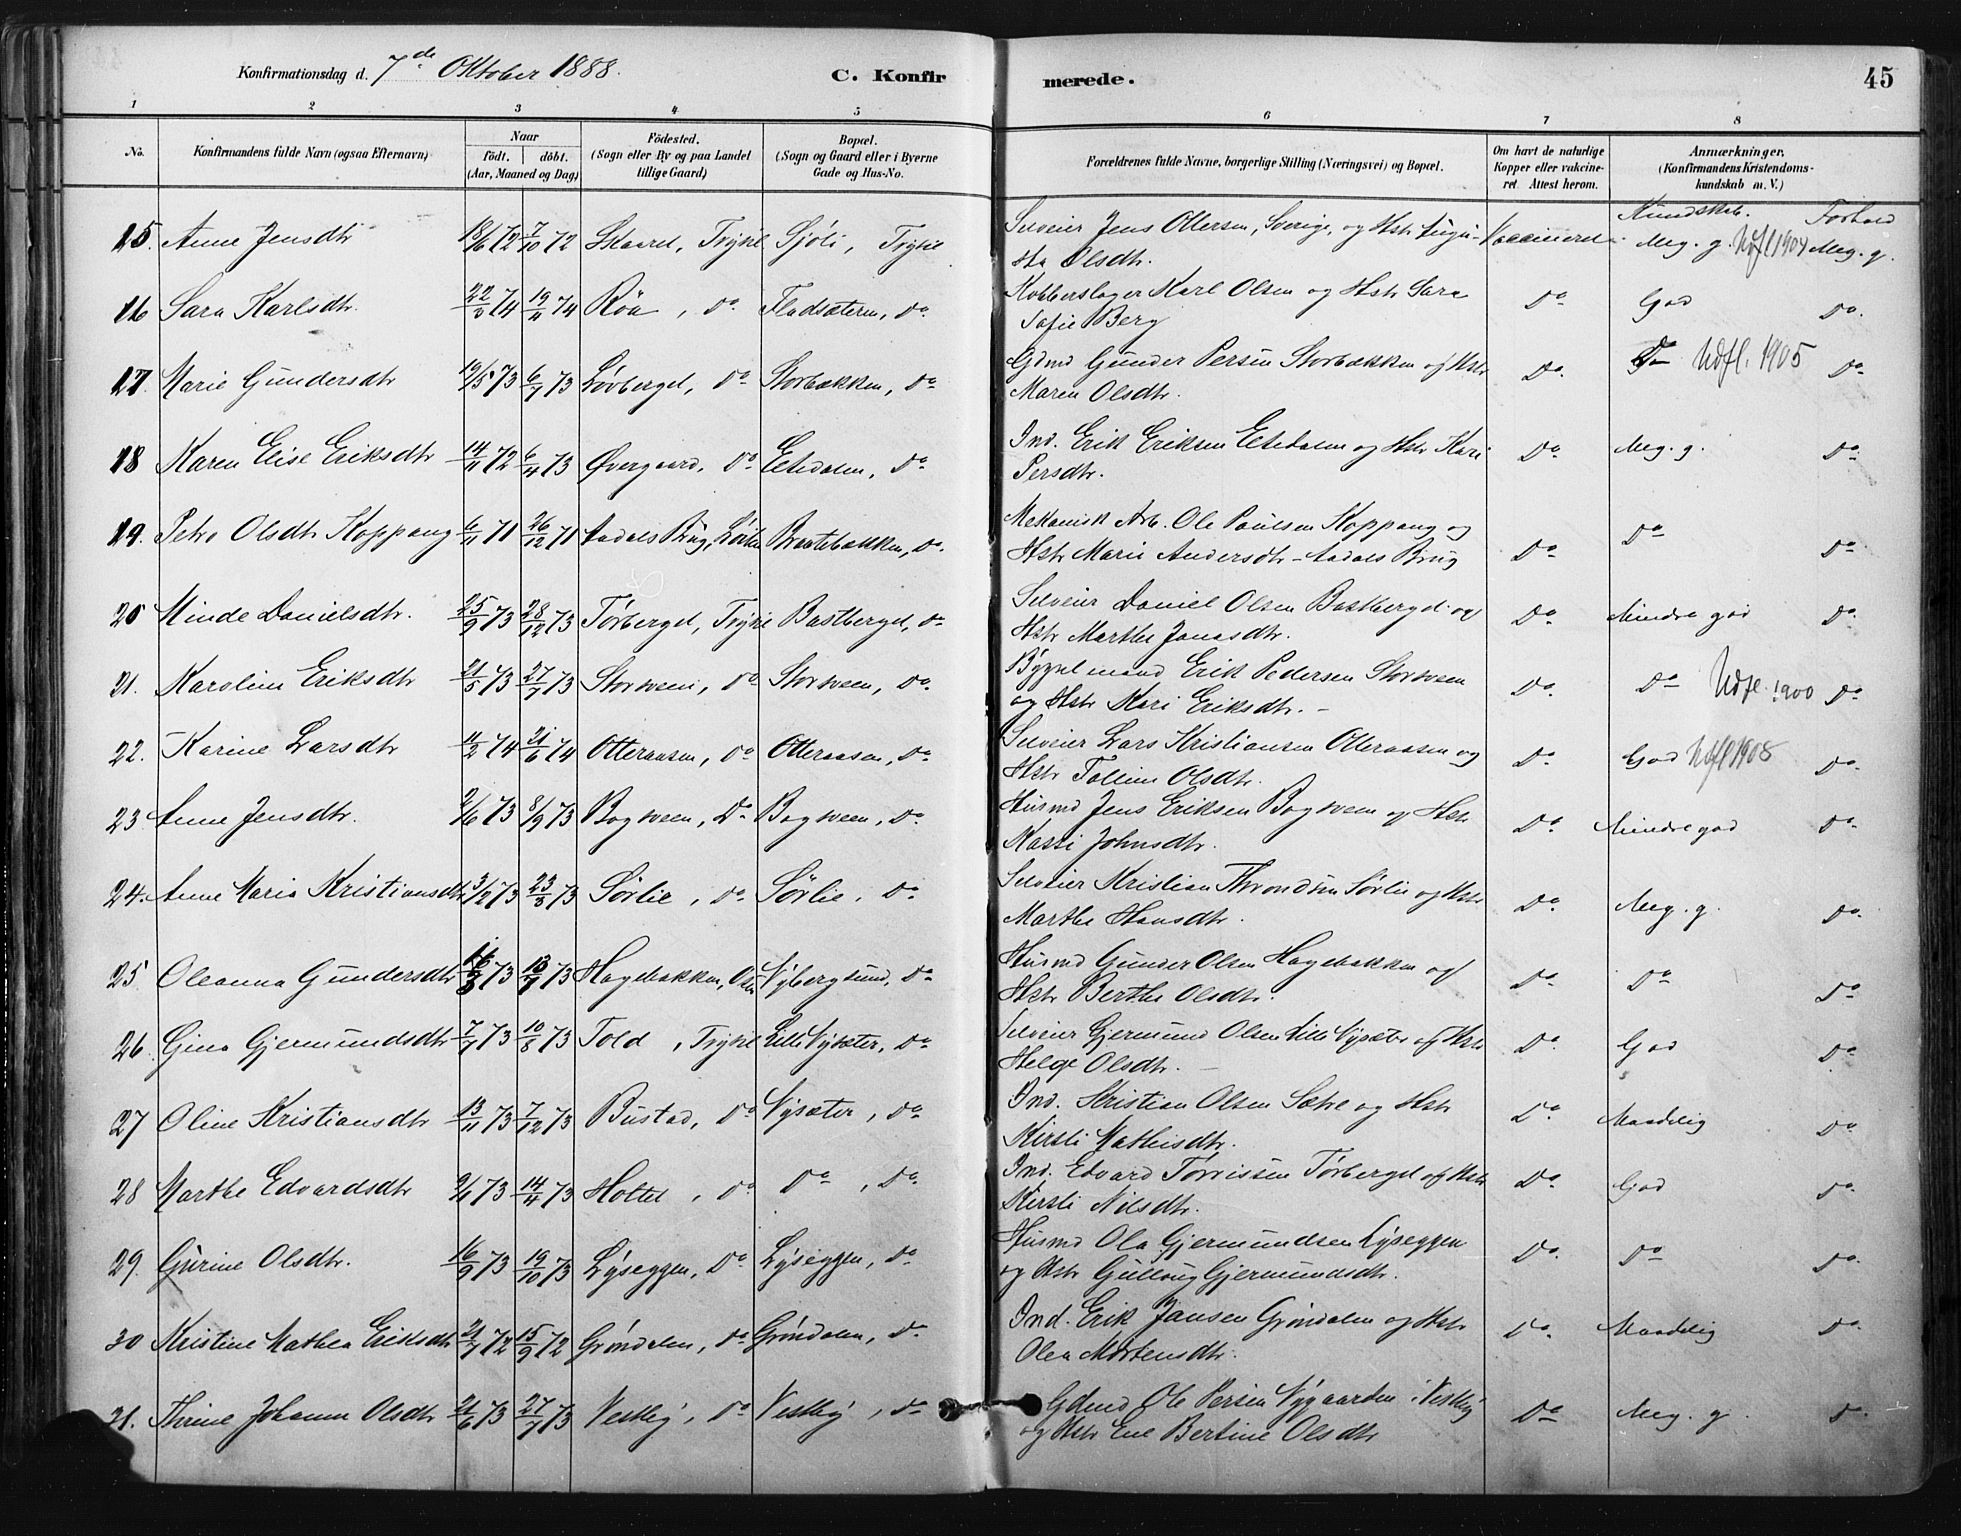 Konfirmationsdag d. 7de Oktober 1888. C. Konfir merede. 45
1 2 3 4 5 6 7 8
No. Konfirmandens fulde Navn (ogsaa Efternavn)
Naar födt. döbt. (Aar, Maaned og Dag)
Födested. (Sogn eller By og paa Landet tillige Gaard)
Bopæl. (Sogn og Gaard eller i Byerne Gade og Hus-No.
Forældrenes fulde Navne, borgerlige Stilling (Næringsvei) og Bopæl.
Om havt de naturlige Kopper eller vakcineret. Attest herom.
Anmærkninger, (Konfirmandens Kristendomskundskab m. V.)
Kundskab. Forhold
15. Anne Jensdtr 18/6 72 7/10 72 Trysil Sjöli, Trysil Selveier Jens Ottersen, Sverige, og Hstr Augu- Vaccineret Meg. g. Udfl 1904 Meg. g.
sta Olsdtr.
16 Sara Karlsdtr. 74 19/4 74 Röa, Do Fladsæteren, Do. Kobberslager Karl Olsen og Hstr Sara Do God Do.
Sofie Berg
17. Marie Gundersdtr 19/5 73 6/7 73 Lövberget, Do Storbækken, Do Gdmd Gunder Persen Storbækken og Hstr Do. Do Udfl. 1905 Do
Maren Olsdtr.
18 Karen Elise Eriksdtr 14/11 72 6/4 73 Övergaard, Do Eltdalen, Do Ind. Erik Eriksen Eltdalen og Hstr Kari Do Meg. g. Do
Persdtr.
19. Petra Olsdtr Koppang 6/11 71 26/12 71 Aadals Brug, Löiten Braatebækken, Do. Mekanisk Arb. Ole Paulsen Koppang og Do Do Do
Hstr Marie Andersdtr - Aadals Brug
20 Minde Danielsdtr. 25/9 73 28/12 73 Törberget, Trysil Bastberget, Do Selveier Daniel Olsen Bastberget og Do Mindre god Do
Hstr Marthe Jonasdtr.
21. Karoline Eriksdtr 21/5 73 27/7 73 Storsveen, Do Storsveen, Do. Bygselmand Erik Pedersen Storsveen Do Do Udfl. 1900 Do
og Hstr Kari Eriksdtr. -
22. Karine Larsdtr 11/2 74 21/6 74 Otteraasen, Do Otteraasen, Do Selveier Lars Kristiansen Otteraasen og Do. God Udfl 1908 Do.
Hstr Olsdtr.
23. Anne Jensdtr. 2/6 73 8/9 73 Bogsveen, Do Bogsveen, Do. Husmd Jens Eriksen Bogsveen og Hstr Do Mindre god Do
Kasti Johnsdtr.
24. Anne Maria Kristiansdtr 3/2 73 23/8 73 Sörlie, Do. Sörlie, Do Selveier Kristian Throndsen Sörlie og Hstr Do. Meg. g. Do
Marthe Hansdtr.
25 Oleanna Gundersdtr 73 13/7 73 Hagebakken, Osen Nybergsund, Do Husmd Gunder Olsen Hagebakken og Do Do Do
Hstr Berthe Olsdtr.
26. Gina Gjermundsdtr 7/7 73 10/8 73 Told, Trysil Lille Nysæter, Do Selveier Gjermund Olsen Lille Nysæter og Hstr Do. God Do
Helge Olsdtr. -
27 Oline Kristiansdtr 13/11 73 7/12 73 Bustad, Do Nysæter, Do Ind. Kristian Olsen Sætre og Hstr Do. Maadelig Do
Kirsti Mathisdtr.
28 Marthe Edvardsdtr 2/1 73 14/4 73 Holtet, Do Do, Do. Ind. Edvard Törrissen Törberget og Hstr Do. God Do
Kirsti Nilsdtr.
29. Gurine Olsdtr. 16/9 73 19/10 73 Lyseggen, Do Lyseggen, Do Husmd Ola Gjermundsen Lyseggen Do Do Do
og Hstr Gullaug Gjermundsdtr.
30 Kristine Mathea Eriksdtr 21/7 72 15/9 72 Gröndalen, Do Gröndalen, Do Ind. Erik Jansen Gröndalen og Hstr Do. Maadelig Do
Olea Mortensdtr.
31. Thrine Johanne Olsdtr 21/6 73 27/7 73 Vestby, Do Vestby, Do Gdmd Ole Persen Nygaarden i Vestby Do Meg. g. Do
og Hstr Ene Bertine Olsdtr